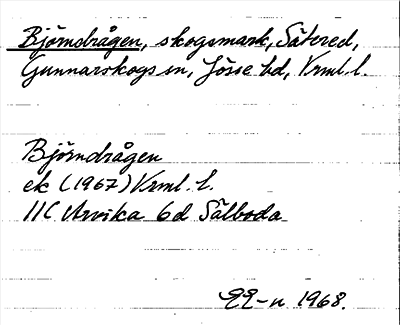 Björndrågen, skogsmark, Sätered,
Gunnarskogs sn, Jösse hd, Vrml. l.
Björndrågen
ek (1967) Vrml. l.
11C Arvika 6d Sälboda
1968.